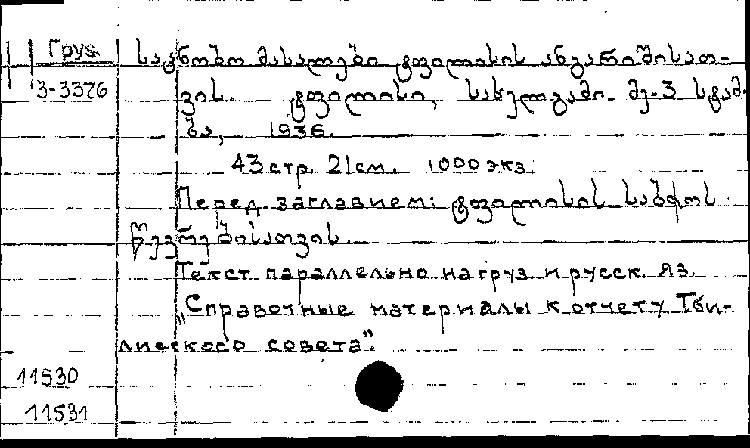 Груз.
3-3376
საცნობო მასალები ტფილისის ანგარიშისათ-
ვის. ტფილისი, სახელგამი. მე-3 სტამ-
ბა, 1936.
43 стр. 21 см. 1000 экз.
Перед заглавием: ტფილისის საბჭოს
წევრებისათვის.
Текст параллельно на груз. и русск. яз.
"Справочные материалы к отчету Тби-
лисского совета".
11530
11531